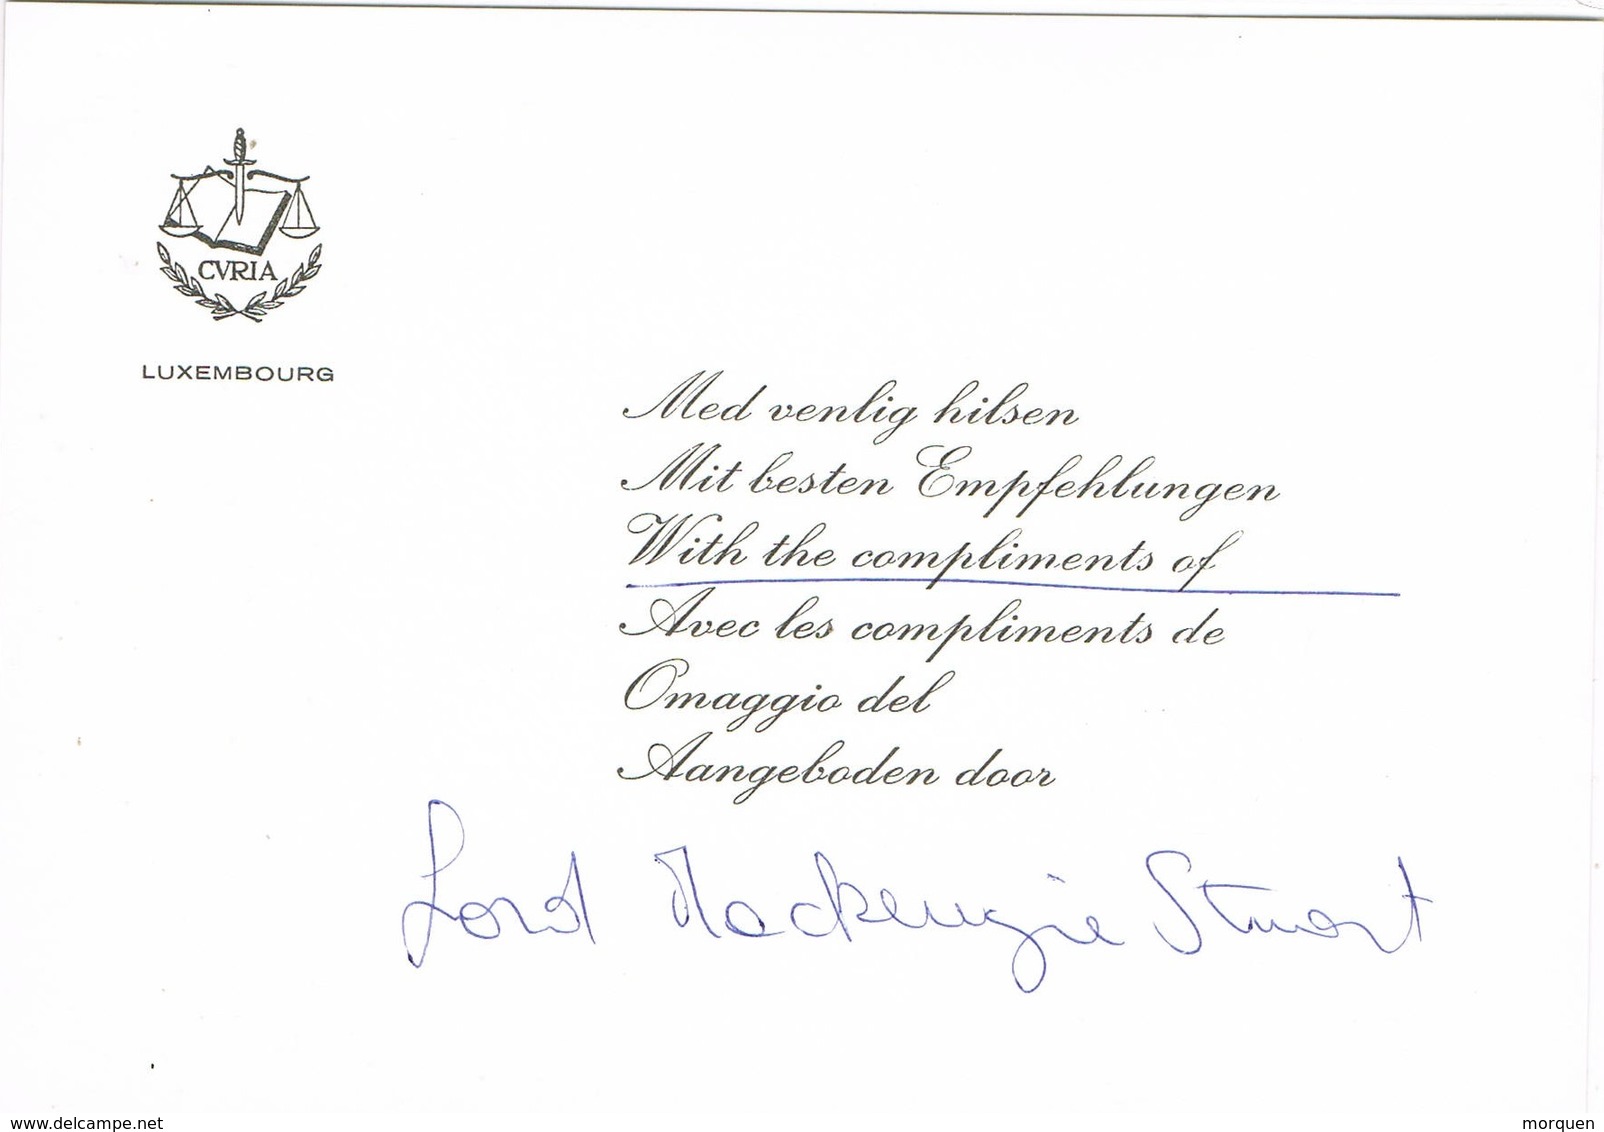 CVRIA
LUXEMBOURG
Med venlig hilsen
Mit besten Empfehlungen
With the compliments of
Avec les compliments de
Omaggio del
Aangeboden door
Lord Mackenzie Stuart
www.delcampe.net
morquen